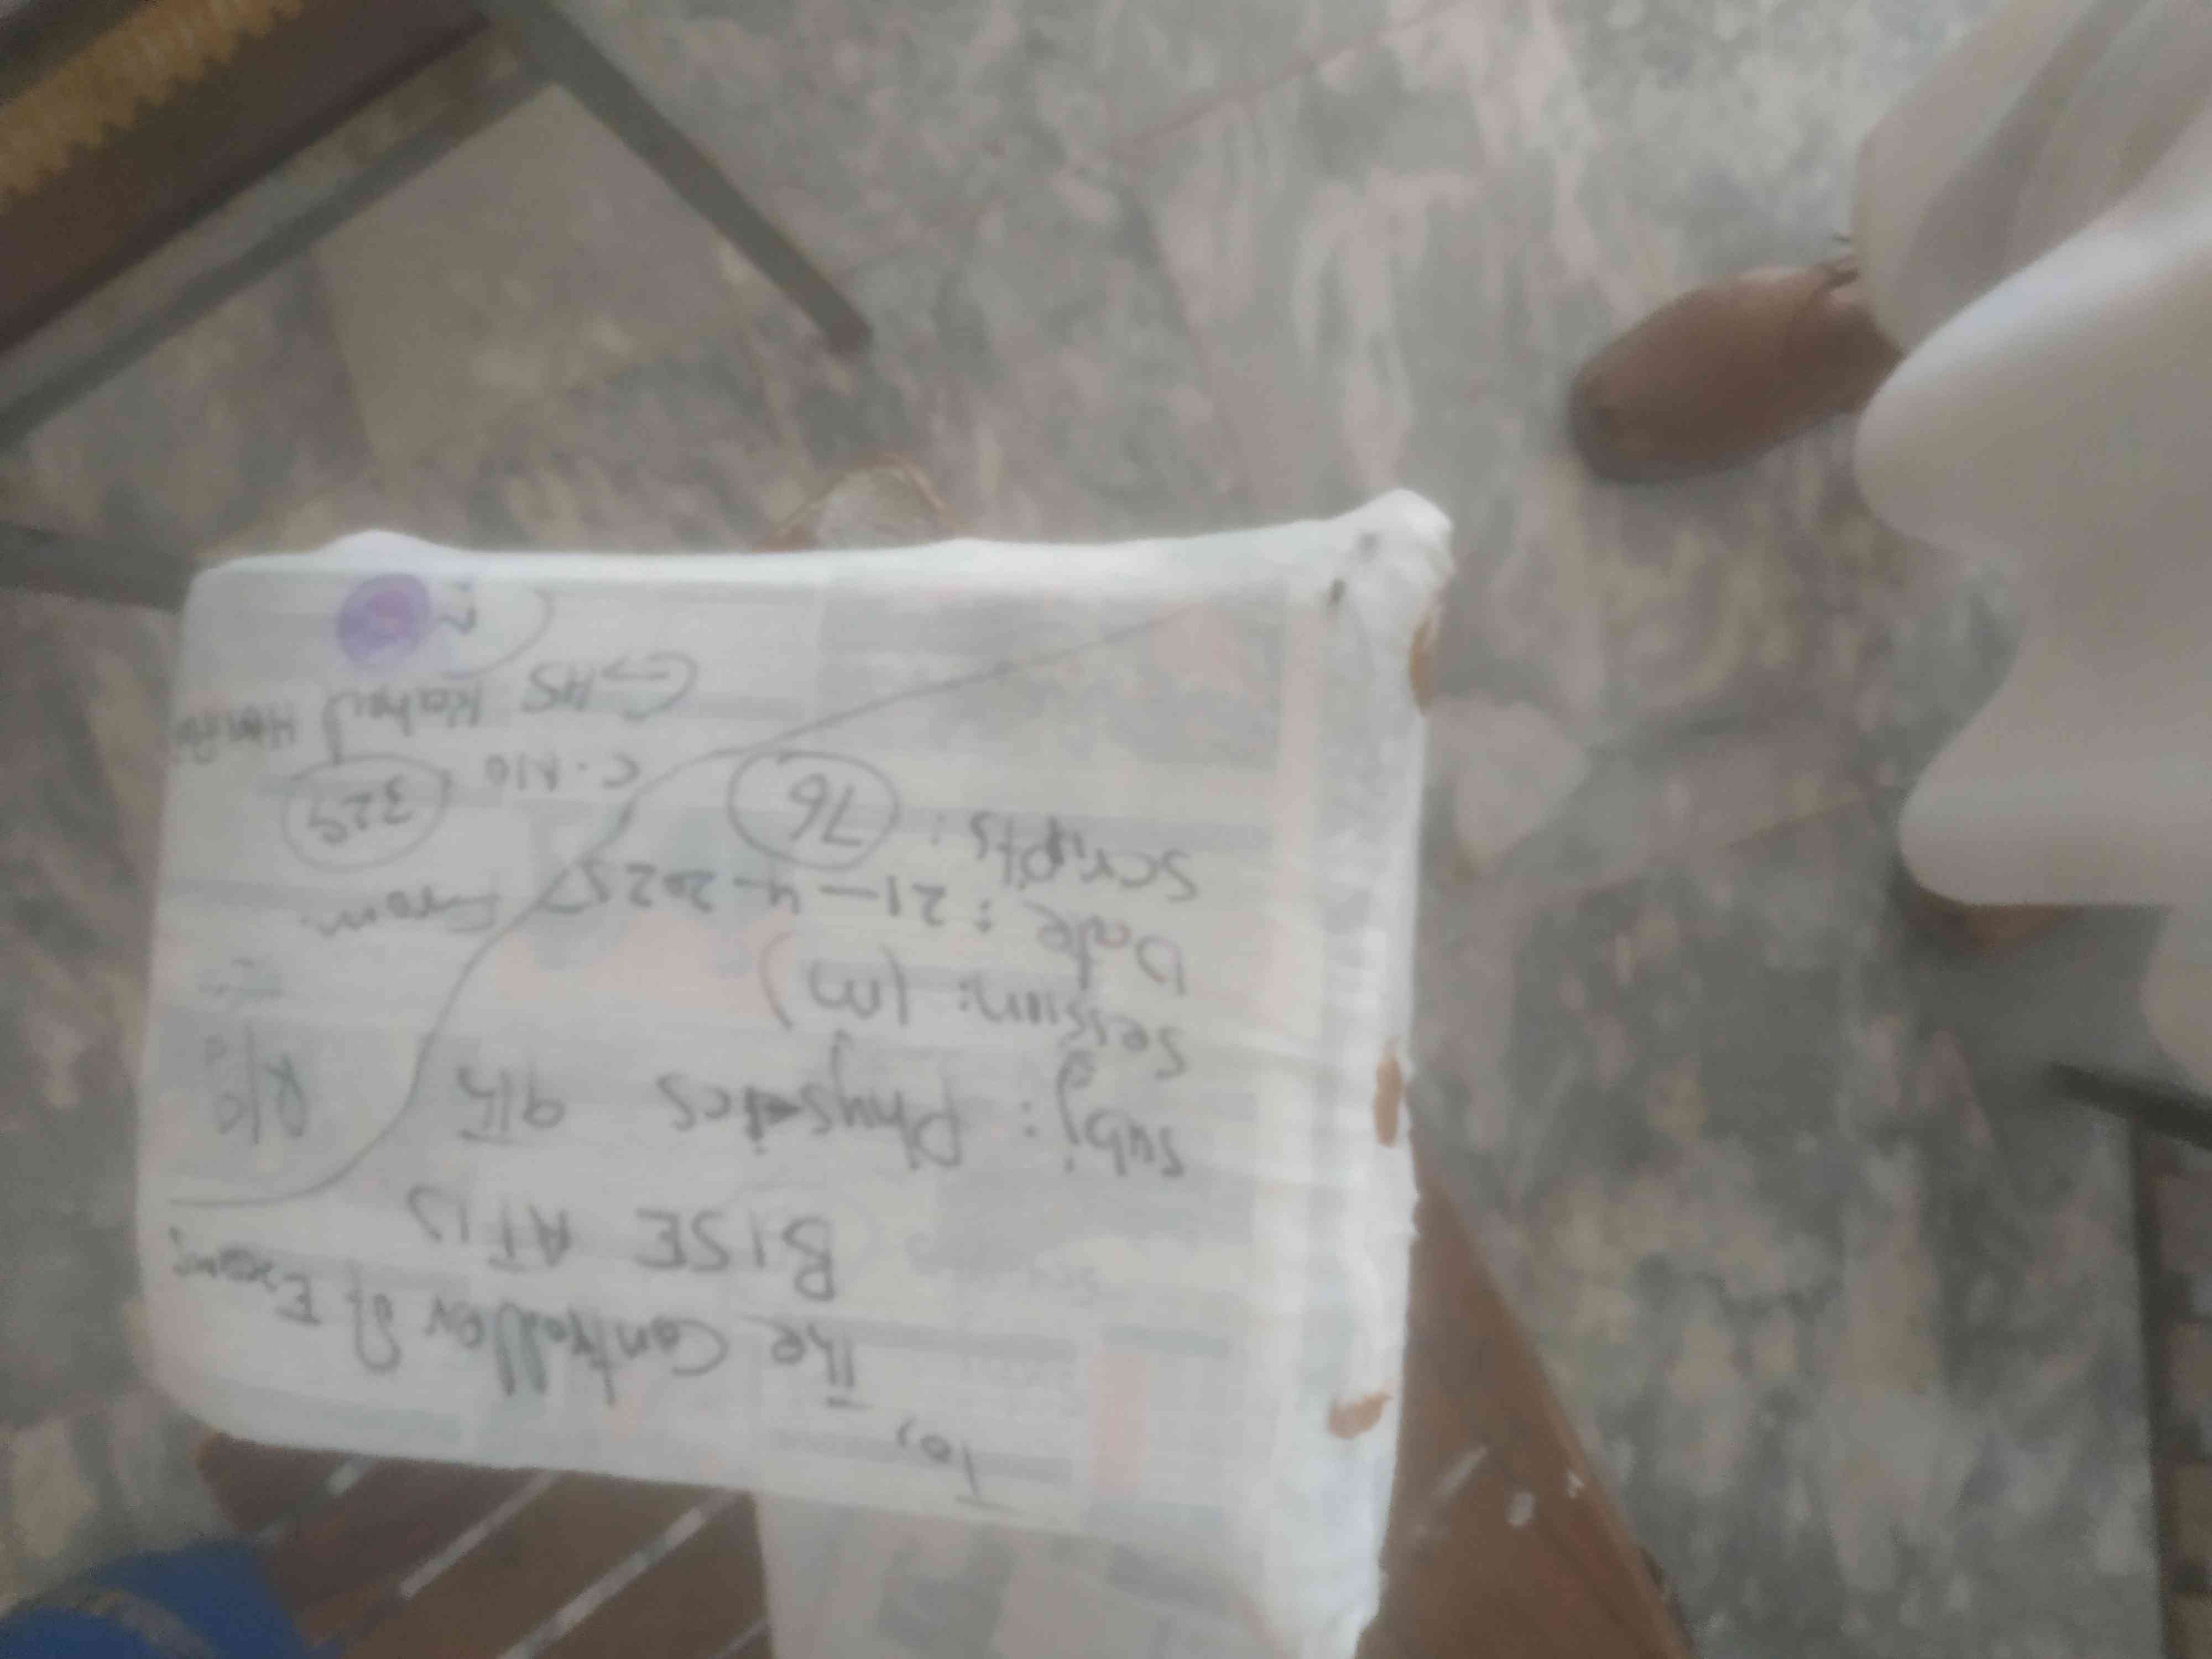 To,
The Controller of Exams
BISE ATD
Subj: Physics 9th
Session: (M)
Date: 21-4-2025
Scripts: 76
From
C.No 329
GHS